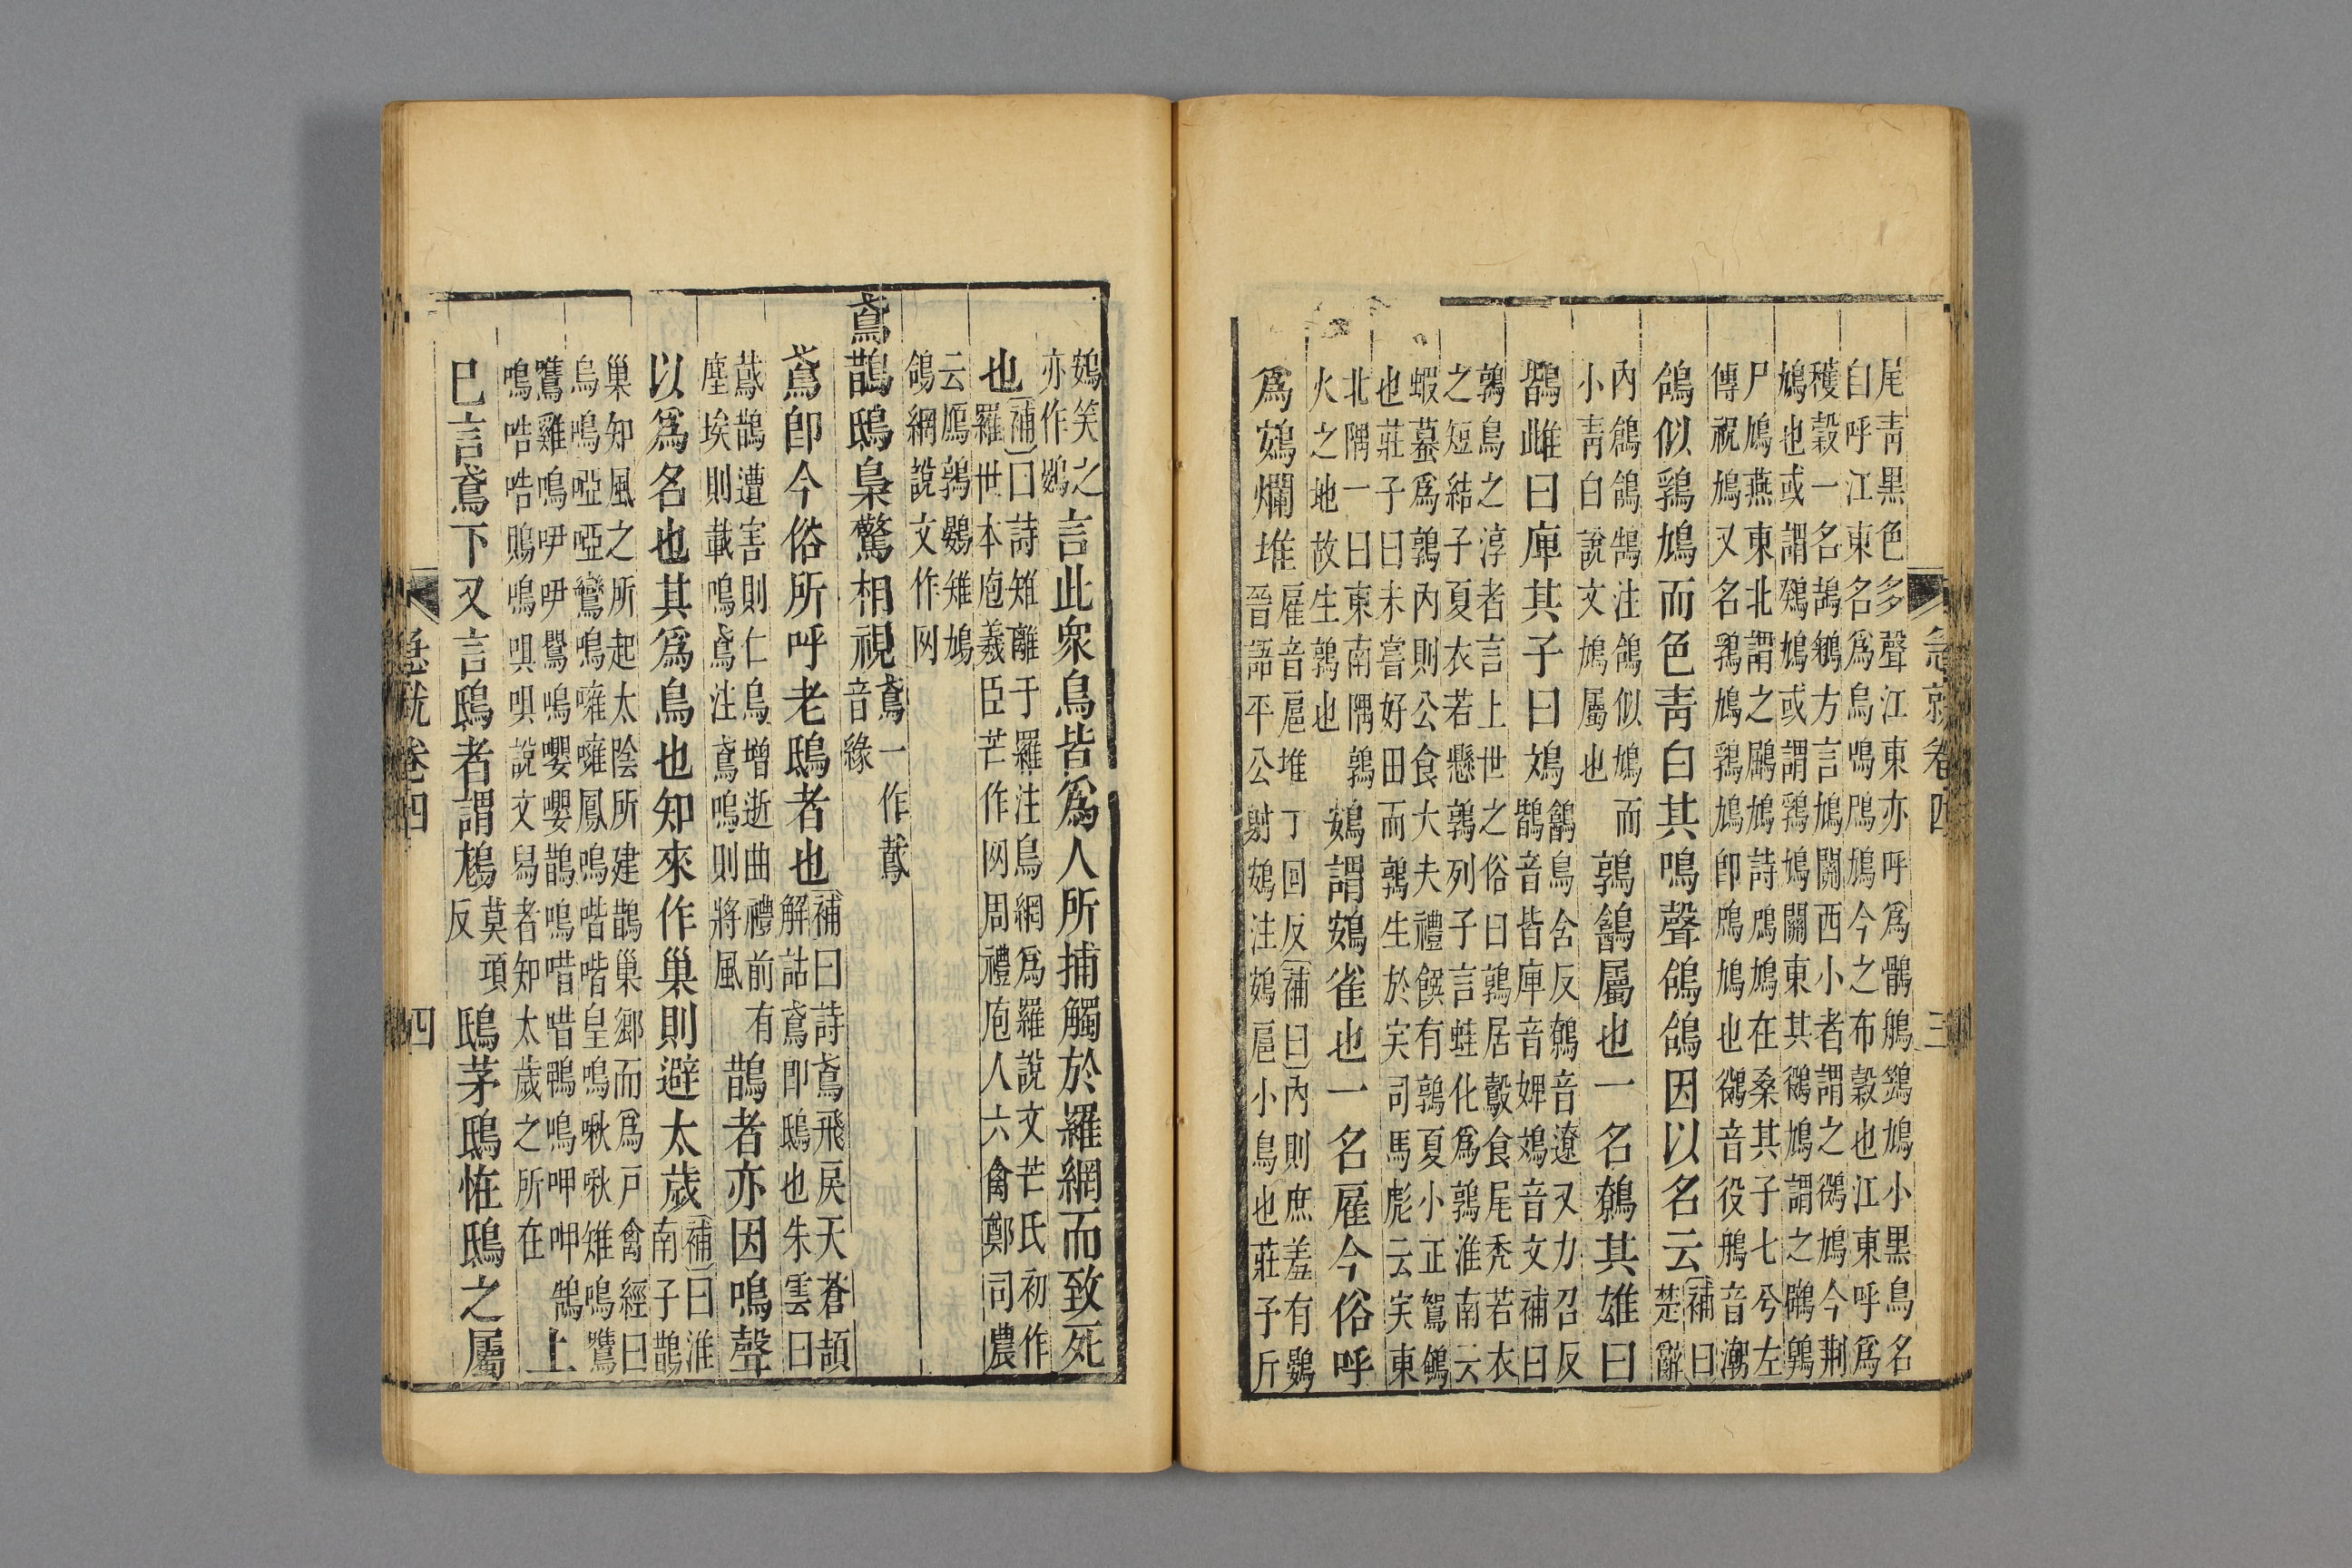 急就卷四 三
尾青黑色多聲江東亦呼爲鶻鵃鷑鳩小黑鳥名
自呼江東名爲烏鳴鳲鳩今之布穀也江東呼爲
穫穀一名鴶鵴方言鳩關西小者謂之 鳩今荆
鳩也或謂 鳩或謂 鳩關東其 鳩謂之
尸鳩燕東北謂之 鳩詩鳲鳩在桑其子七兮左
傳祝鳩又名 鳩 鳩即鳲鳩也 音役鵃音潮
鴿似 鳩而色青白其鳴聲鴿鴿因以名云
補曰
楚辭
內鶬鴿鵠注鴿似鳩而
小青白說文鳩屬也
鶉䳺屬也一名鷯其雄曰
鶛雌曰庳其子曰鳼
䳺鳥含反鷯音遼又力召反
鶛音皆庳音婢鳼音文補曰
鶉鳥之淳者言上世之俗曰鶉居鷇食尾秃若衣
之短結子夏衣若懸鶉列子言蛙化爲鶉淮南云
蝦蟇爲鶉內則公食大夫禮饌有鶉夏小正鴽鵪
也莊子曰未嘗好田而鶉生於宎司馬彪云宎東
北隅一曰東南隅鶉
火之地故生鶉也
鴳謂鴳雀也一名雇今俗呼
爲鴳爛堆
雇音扈堆丁回反補曰內則庶羞有鷃
晉語平公射鴳注鴳扈小鳥也莊子斤
鴳笑之
亦作鷃
言此衆鳥皆爲人所捕觸於羅網而致死
也
補曰詩雉離于羅注鳥網爲羅說文芒氏初作
羅世本庖羲臣芒作网周禮庖人六禽鄭司農
云鴈鶉鷃雉鳩
鴿網說文作网
鳶鵲鴟梟驚相視
鳶一作䳒
音緣
鳶卽今俗所呼老鴟者也
補曰詩鳶飛戾天蒼頡
解詁鳶卽鴟也朱雲曰
䳒鵲遭害則仁鳥增逝曲禮前有
塵埃則載鳴鳶注鳶鳴則將風
鵲者亦因鳴聲
以爲名也其爲鳥也知來作巢則避太歲
補曰淮
南子鵲
巢知風之所起太陰所建鵲巢鄉而爲戶禽經曰
烏鳴啞啞鸞鳴噰噰鳳鳴喈喈皇鳴啾啾雉鳴鷕
鷕雞鳴咿咿鸎鳴嚶嚶鵲鳴唶唶鴨鳴呷呷鵠
鳴哠哠鵙鳴嗅嗅說文舄者知太歲之所在
上
巳言鳶下又言鴟者謂鵅
莫項
反
鴟茅鴟恠鴟之屬
急就卷四 四